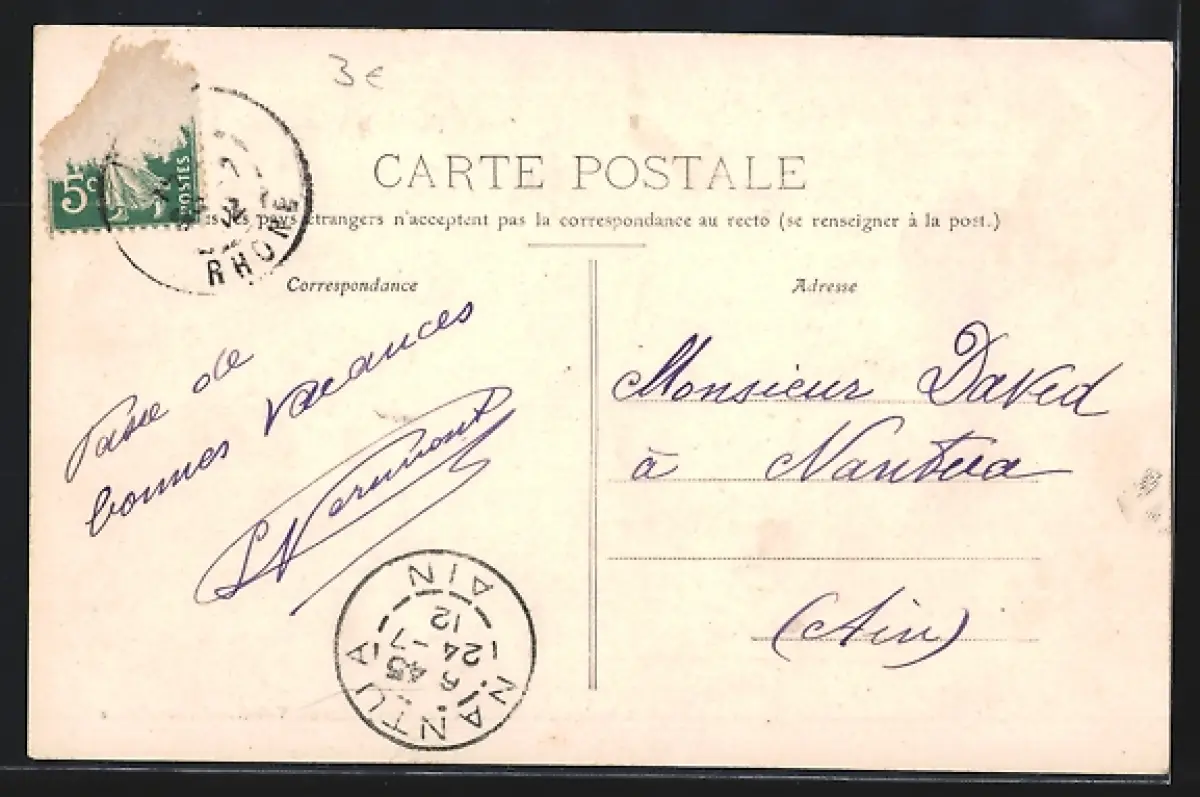 3€
5c
POSTES
RHONE
CARTE POSTALE
pays étrangers n'acceptent pas la correspondance au recto (se renseigner à la post.)
Correspondance
Adresse
Passe de
bonnes vacances
Vermont
Monsieur David
à Nantua
(Ain)
NANTUA
AIN
6 45
24 -7
12